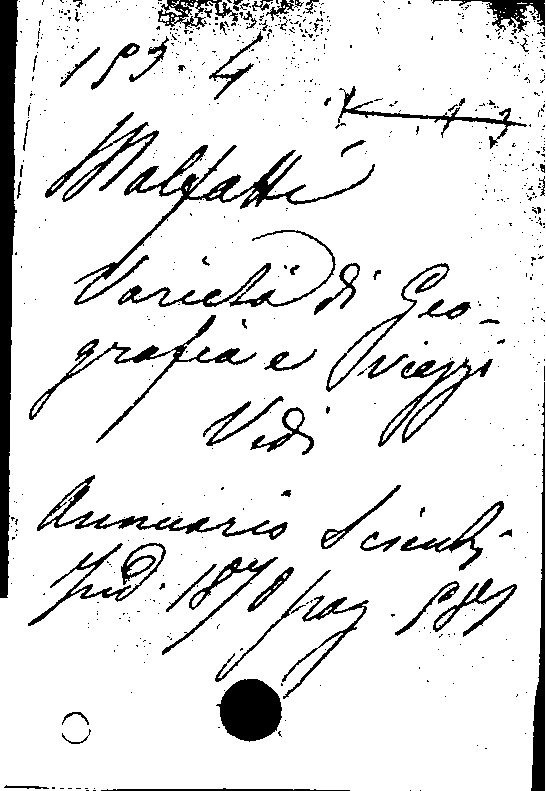 153. 4
K. 1 3
Malfatti
Varietà di Geo-
grafia e viaggi
Vedi
Annuario Scientif.
Ind. 1870 pag. 587